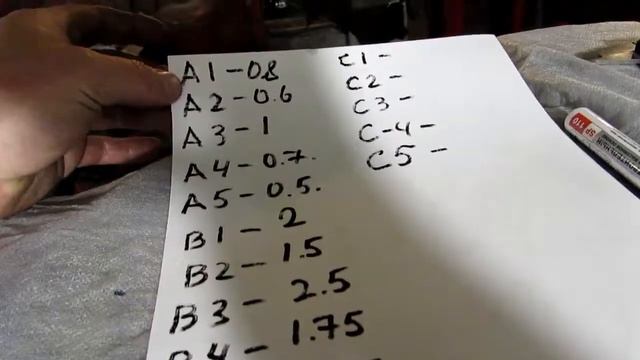 A1-08
A2-0.6
A3-1
A4-0.7.
A5-0.5.
B1-2
B2-1.5
B3-2.5
B4-1.75
C1-
C2-
C3-
C-4-
C5-
SP 110